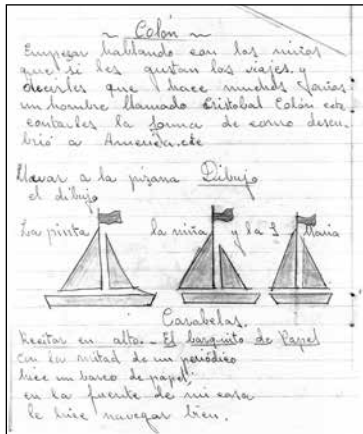 ~ Colón ~
Empezar hablando con los niños
que si les gustan los viajes y
decirles que hace muchos años
un hombre llamado Cristobal Colón etc
contarles la forma de como descu-
brió a America.etc
Llevar a la pizarra Dibujo
el dibujo
La pinta la niña y la S. Maria
Carabelas.
Recitar en alto.- El barquito de Papel
Con la mitad de un periódico
hice un barco de papel,
en la fuente de mi casa
le hice navegar bien.